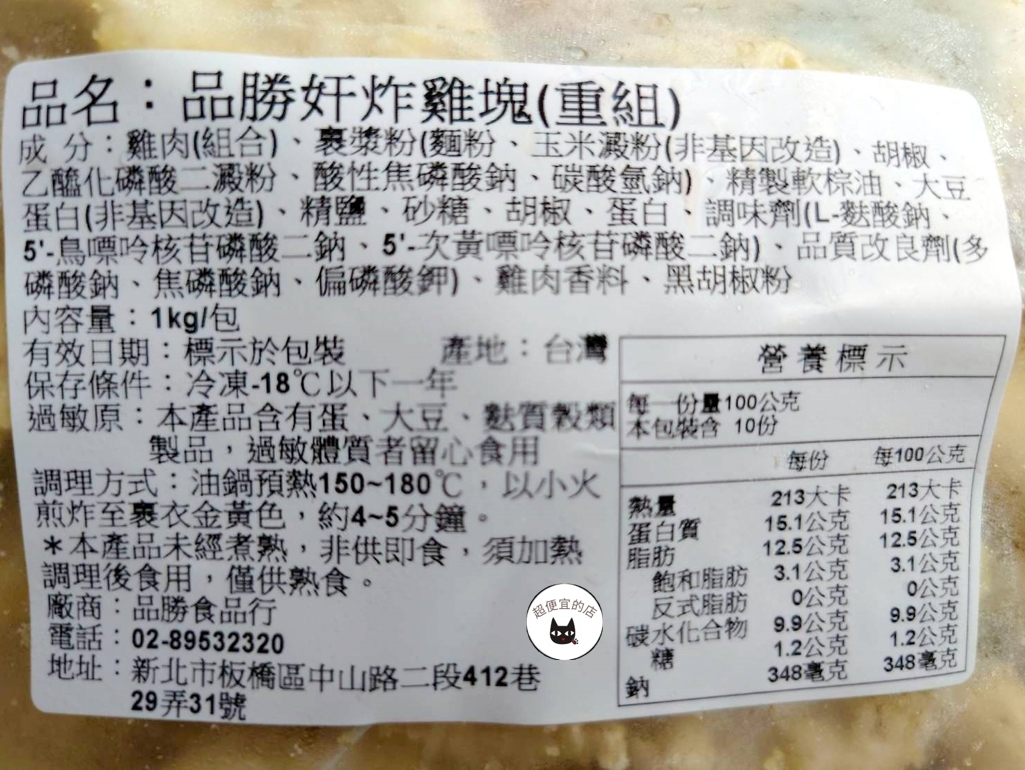 品名：品勝奸炸雞塊(重組)
成 分：雞肉(組合)、裹漿粉(麵粉、玉米澱粉(非基因改造)、胡椒、
乙醯化磷酸二澱粉、酸性焦磷酸鈉、碳酸氫鈉)、精製軟棕油、大豆
蛋白(非基因改造)、精鹽、砂糖、胡椒、蛋白、調味劑(L-麩酸鈉、
5'-鳥嘌呤核苷磷酸二鈉、5'-次黃嘌呤核苷磷酸二鈉)、品質改良劑(多
磷酸鈉、焦磷酸鈉、偏磷酸鉀)、雞肉香料、黑胡椒粉
內容量：1kg/包
有效日期：標示於包裝 產地：台灣
保存條件：冷凍-18℃以下一年
過敏原：本產品含有蛋、大豆、麩質穀類
製品，過敏體質者留心食用
調理方式：油鍋預熱150~180℃，以小火
煎炸至裹衣金黃色，約4~5分鐘。
＊本產品未經煮熟，非供即食，須加熱
調理後食用，僅供熟食。
廠商：品勝食品行
電話：02-89532320
地址：新北市板橋區中山路二段412巷
29弄31號
超便宜的店
營養標示
每一份量100公克
本包裝含 10份
每份 每100公克
熱量 213大卡 213大卡
蛋白質 15.1公克 15.1公克
脂肪 12.5公克 12.5公克
飽和脂肪 3.1公克 3.1公克
反式脂肪 0公克 0公克
碳水化合物 9.9公克 9.9公克
糖 1.2公克 1.2公克
鈉 348毫克 348毫克